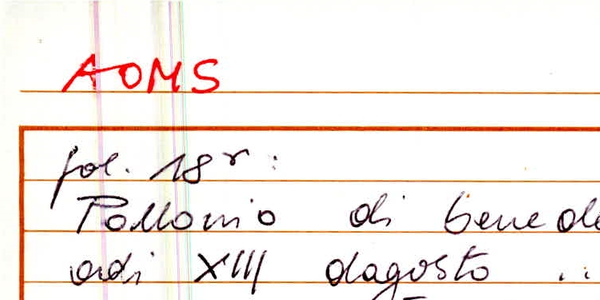 AOMS
fol. 18r:
Pollonio di bened
adi XIII dagosto ..